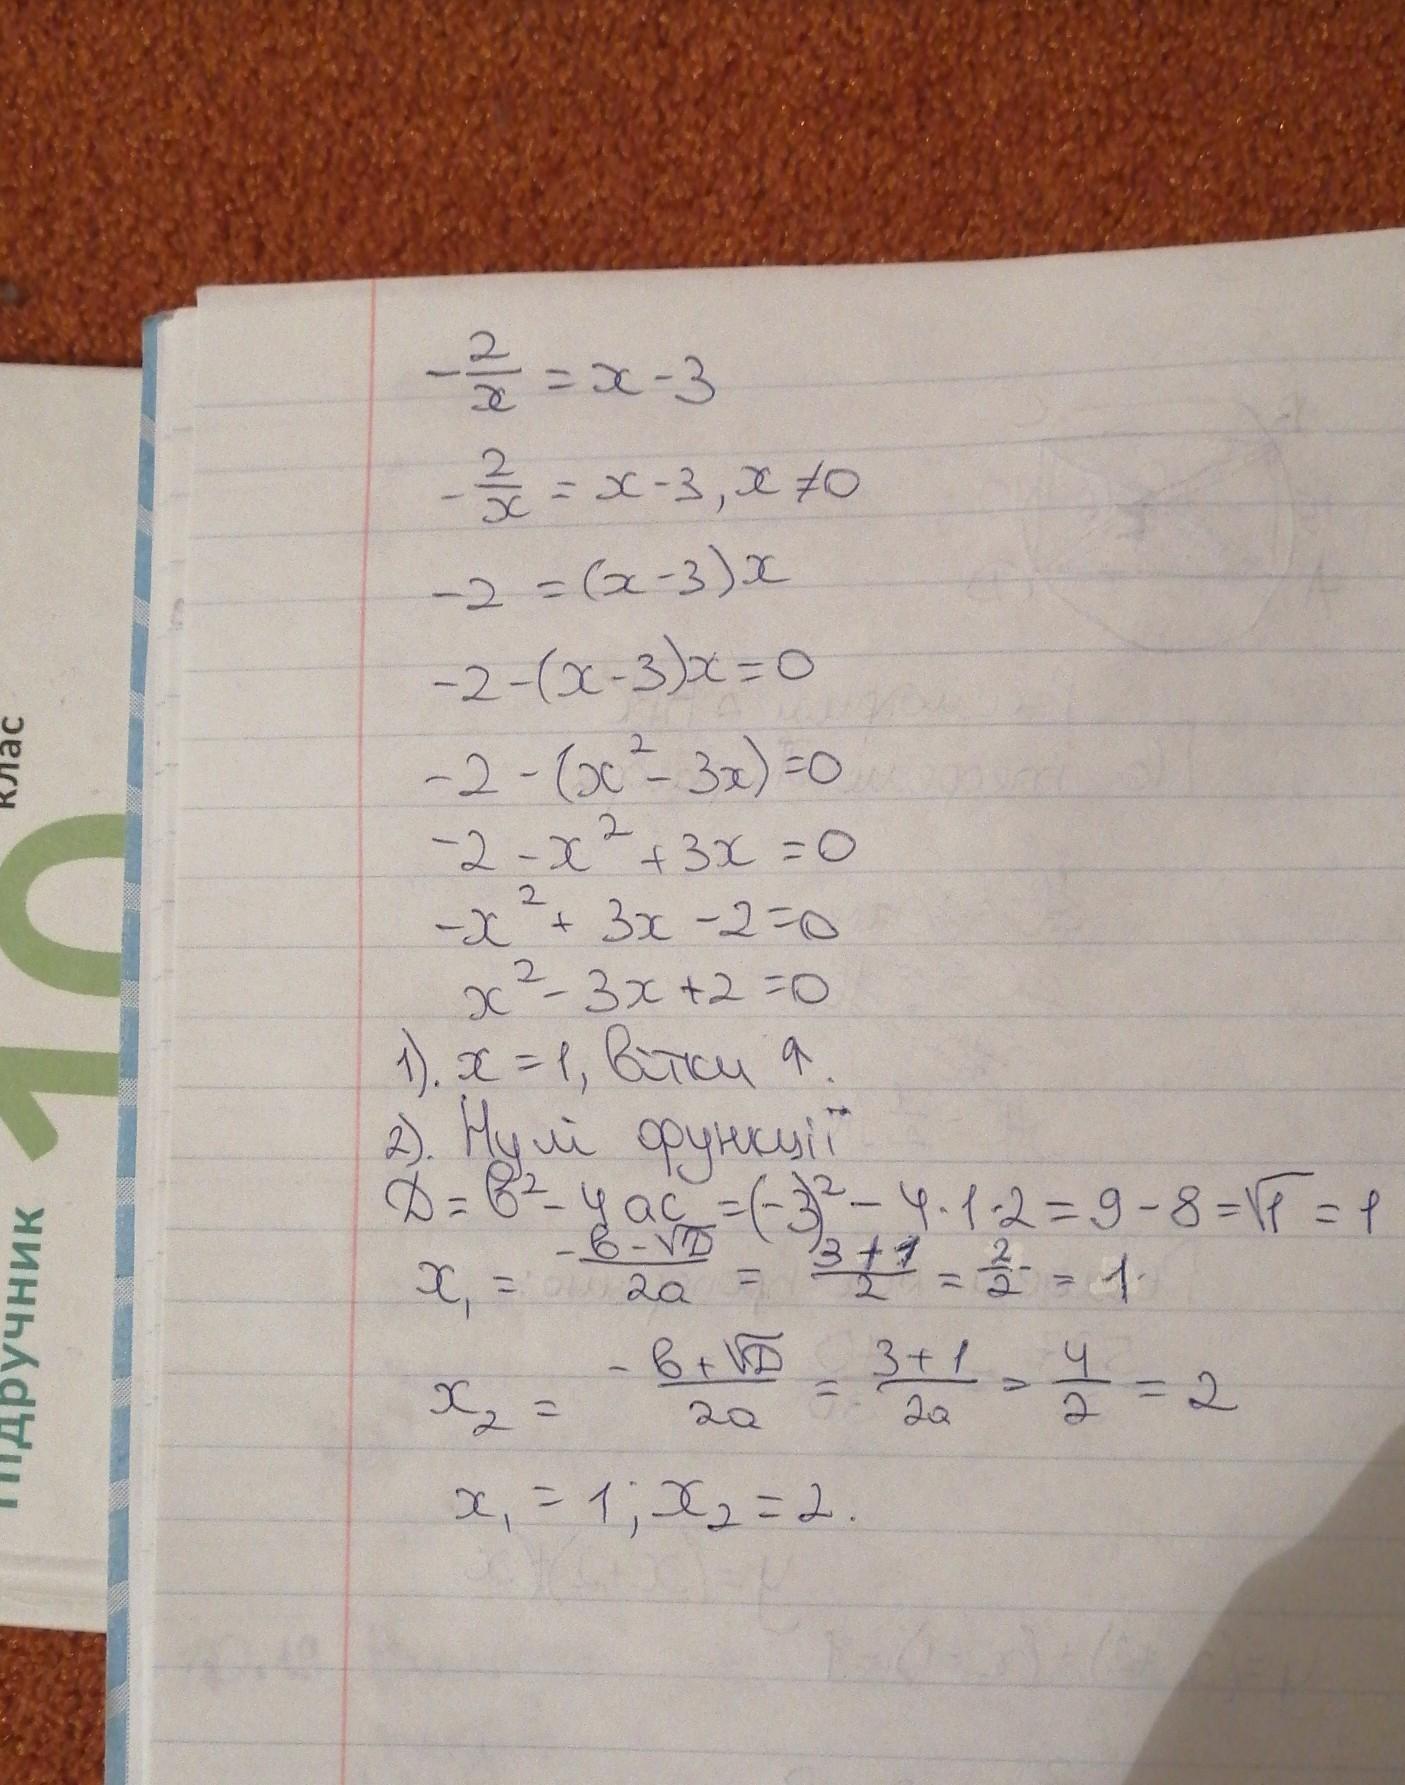 -2/x = x - 3
-2/x = x - 3, x ≠ 0
-2 = (x - 3)x
-2 - (x - 3)x = 0
-2 - (x² - 3x) = 0
-2 - x² + 3x = 0
-x² + 3x - 2 = 0
x² - 3x + 2 = 0
1). x = 1, вітки ↑.
2). Нулі функції
D = b² - 4ac = (-3)² - 4·1·2 = 9 - 8 = √1 = 1
x₁ = (-b - √D)/2a = (3 + 1)/2 = 2/2 = 1.
x₂ = (-b + √D)/2a = (3 + 1)/2a = 4/2 = 2
x₁ = 1; x₂ = 2.
Підручник
10
клас